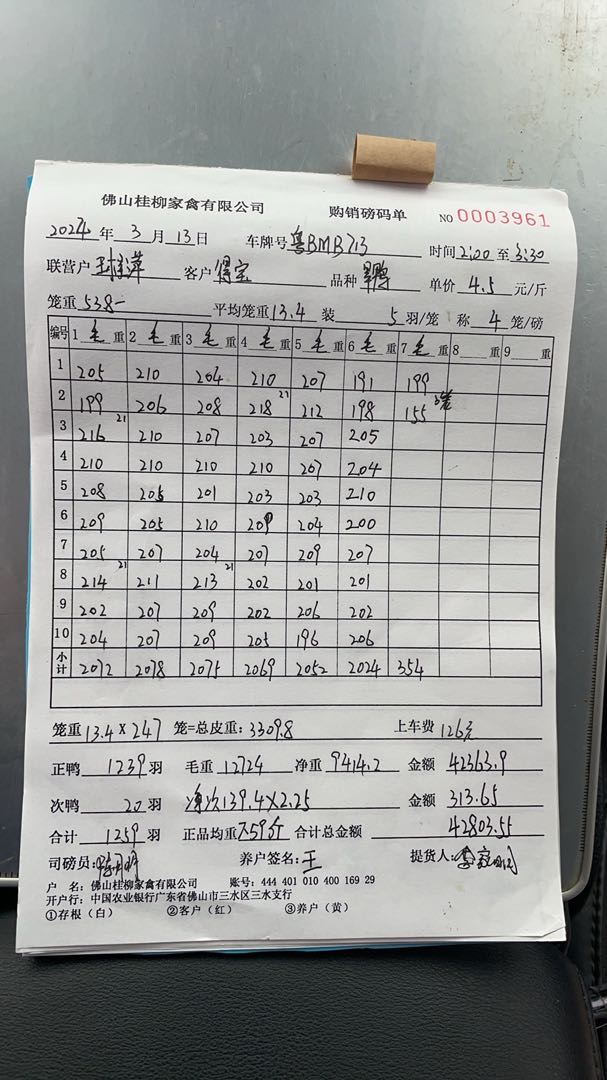 佛山桂柳家禽有限公司 购销磅码单 NO 0003961
2024 年 3 月 13 日 车牌号 粤BMB713 时间 2:00 至 3:30
联营户 客户 得宝 品种 单价 4.5 元/斤
笼重 538- 平均笼重 13.4 装 5 羽/笼 称 4 笼/磅
编号 1 毛 重 2 毛 重 3 毛 重 4 毛 重 5 毛 重 6 毛 重 7 毛 重 8 重 9 重
1 205 210 204 210 207 191 199
2 199 206 208 218 21 212 198 155
3 216 21 210 207 203 207 205
4 210 210 210 210 207 204
5 208 205 201 203 203 210
6 209 205 210 209 204 200
7 205 207 204 207 209 207
8 214 21 211 213 21 202 201 201
9 202 207 209 202 206 202
10 204 207 209 205 196 206
小计 2072 2078 2075 2069 2052 2024 354
笼重 13.4 X 247 笼=总皮重: 3309.8 上车费 126元
正鸭 1239 羽 毛重 12724 净重 9414.2 金额 42363.9
次鸭 20 羽 净次139.4X2.25 金额 313.65
合计 1259 羽 正品均重 7.59斤 合计总金额 42803.55
司磅员: 养户签名: 王 提货人:
户 名: 佛山桂柳家禽有限公司 账号: 444 401 010 400 169 29
开户行: 中国农业银行广东省佛山市三水区三水支行
①存根（白） ②客户（红） ③养户（黄）